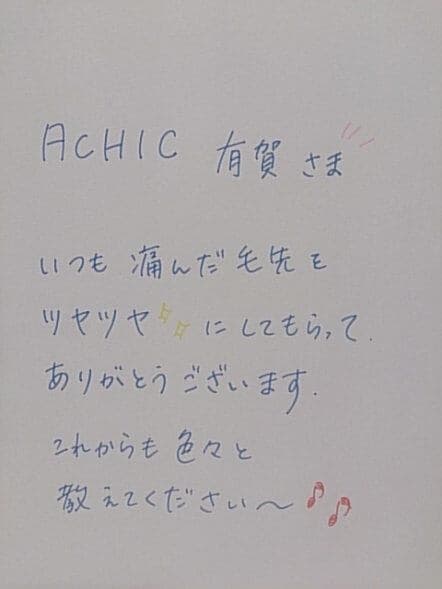 ACHIC 有賀 さま
いつも 痛んだ 毛先を
ツヤツヤ✨にしてもらって.
ありがとうございます.
これからも 色々と
教えてください〜♪♪